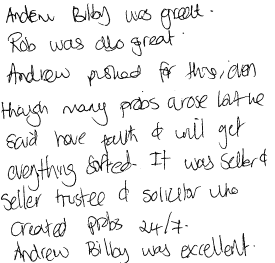 Andrew Bilby was great.
Rob was also great.
Andrew pushed for this, even
though many probs arose but he
said have faith & will get
everything sorted. It was seller &
seller trustee & solicitor who
created probs 24/7.
Andrew Bilby was excellent.